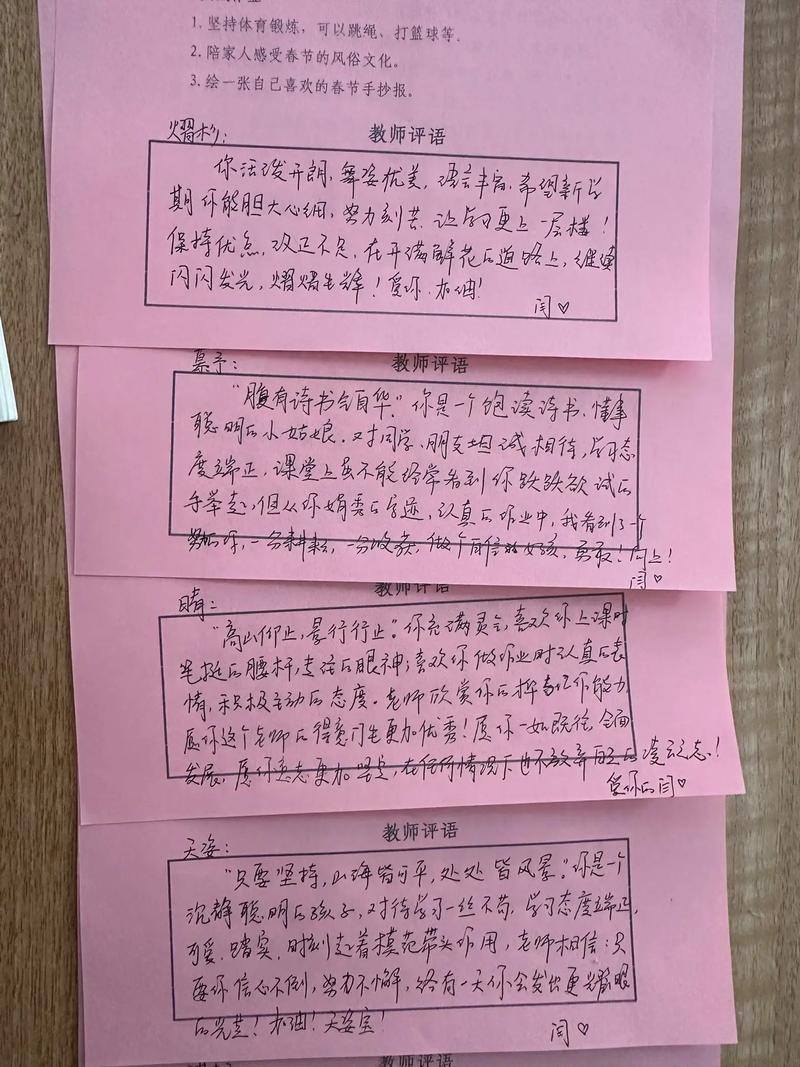 1. 坚持体育锻炼，可以跳绳、打篮球等。
2. 陪家人感受春节的风俗文化。
3. 绘一张自己喜欢的春节手抄报。
熠杉：
教师评语
你活泼开朗，舞姿优美，语言丰富，希望新学
期你能胆大心细，努力刻苦，让学习更上一层楼！
保持优点，改正不足，在开满鲜花的道路上，继续
闪闪发光，熠熠生辉！爱你，加油！
闫♡
慕予：
教师评语
“腹有诗书气自华。”你是一个饱读诗书、懂事
聪明的小姑娘。对同学、朋友坦诚相待，学习态
度端正，课堂上虽不能经常看到你跃跃欲试的
手举起，但从你娟秀的字迹，认真的作业中，我看到了一个
努力的你，一分耕耘，一分收获，做个自信的女孩，勇敢！向上！
闫♡
教师评语
晴：
“高山仰止，景行行止。”你充满灵气，喜欢你上课时
笔挺的腰杆，专注的眼神；喜欢你做作业时认真的表
情，积极主动的态度。老师欣赏你的组织能力
愿你这个老师的得意门生更加优秀！愿你一如既往，全面
发展，愿你意志更加坚定，在任何情况下也不放弃自己的凌云之志！
爱你的闫♡
教师评语
天姿：
“只要坚持，山海皆可平，处处皆风景。”你是一个
沉静聪明的孩子，对待学习一丝不苟，学习态度端正，
可爱、踏实，时刻起着模范带头作用，老师相信：只
要你信心不倒，努力不懈，终有一天你会发出更耀眼
的光芒！加油！天姿宝！
闫♡
教师评语